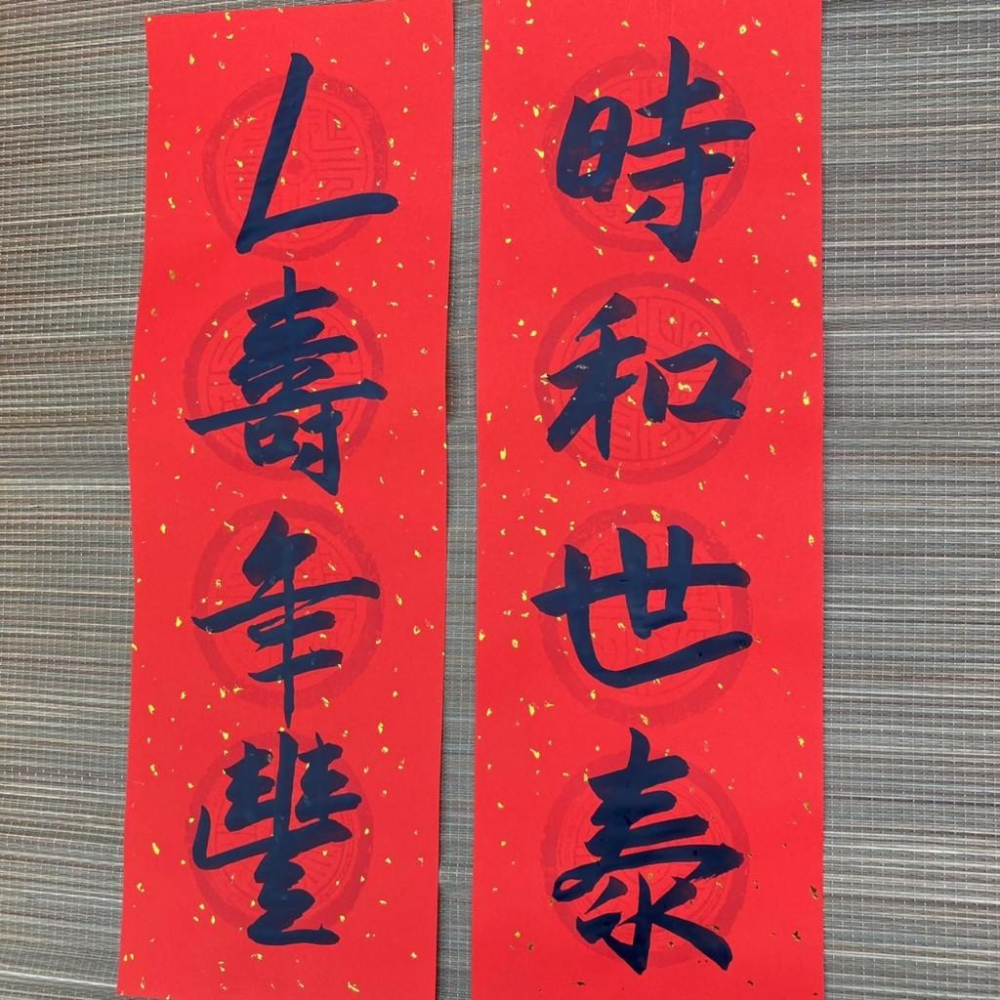 時和世泰
人壽年豐